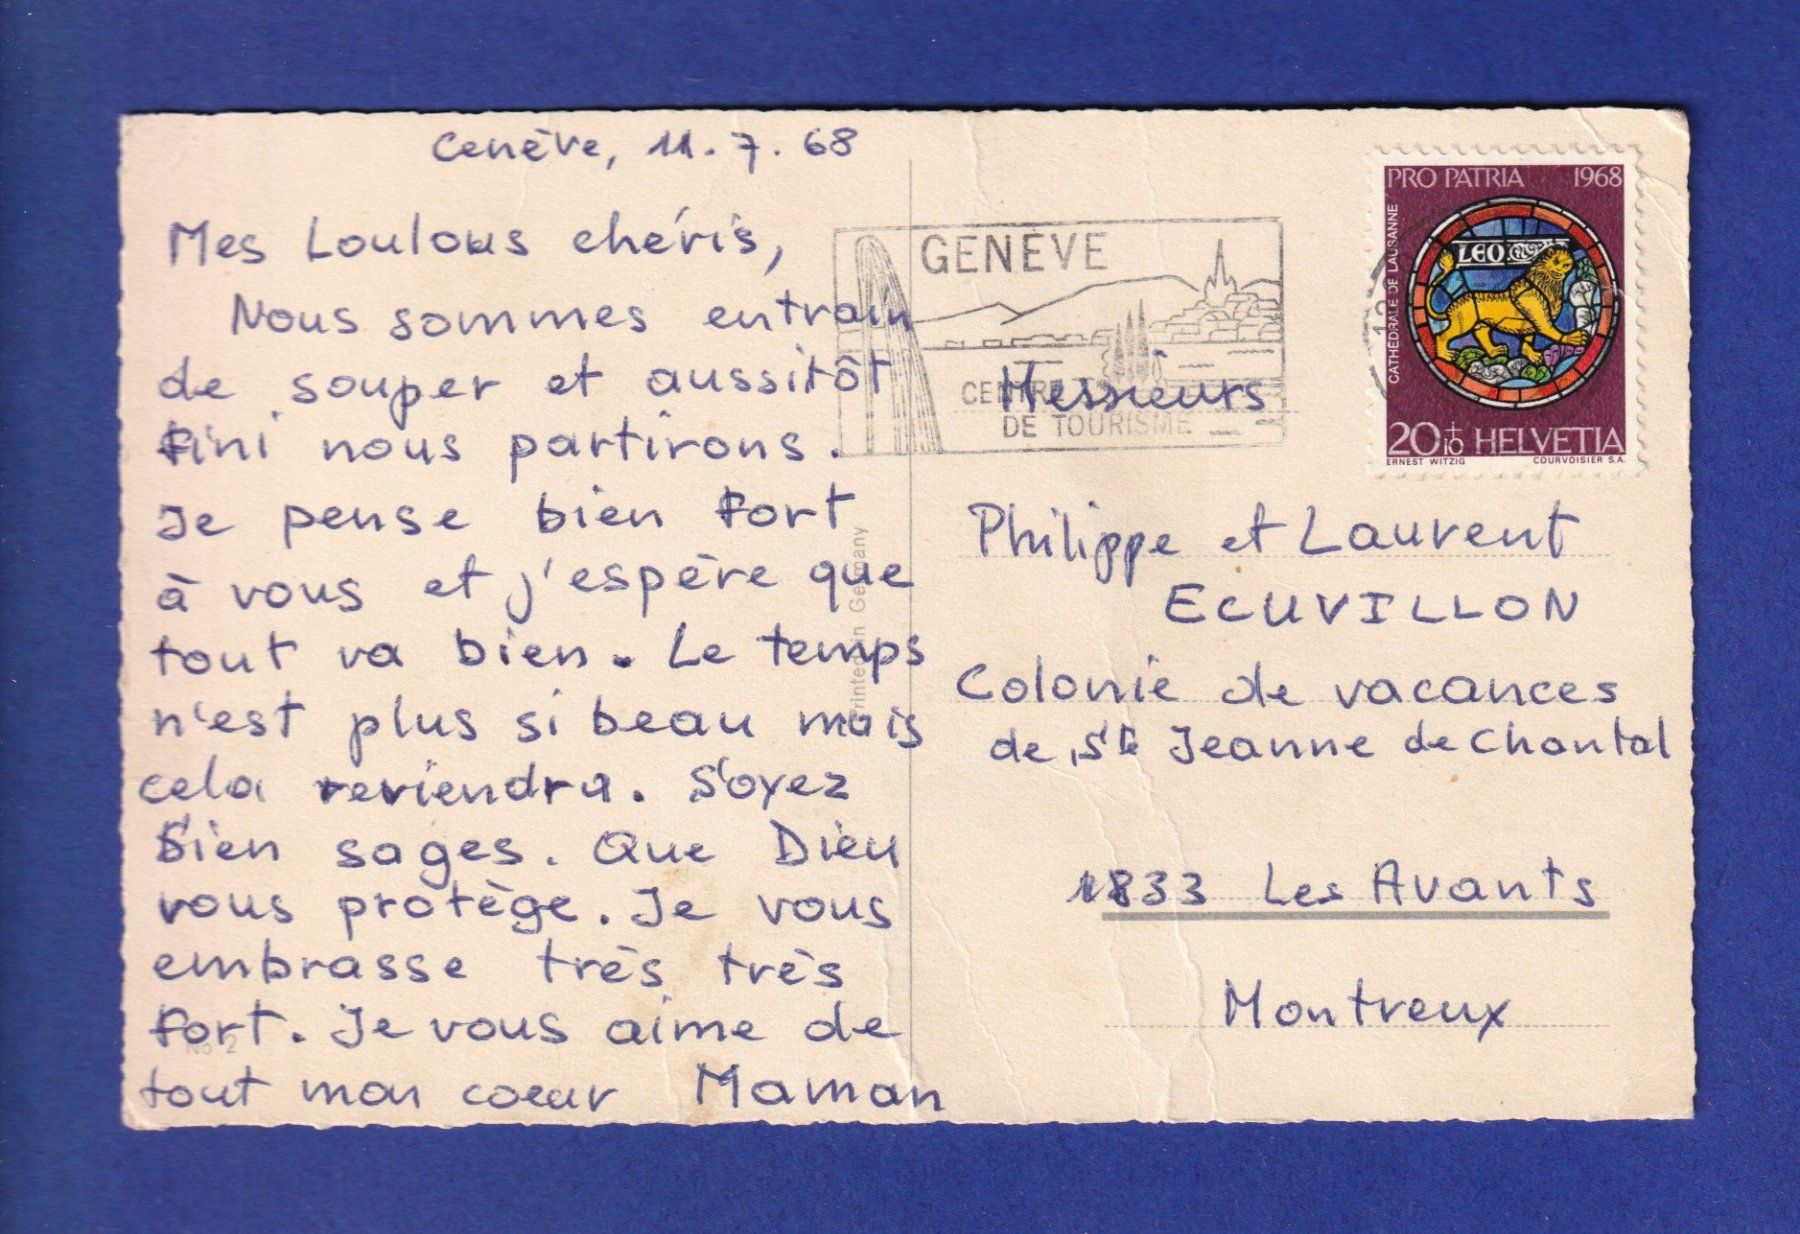 Genève, 11.7.68
Mes Loulous chéris,
Nous sommes entrain
de souper et aussitôt
fini nous partirons.
Je pense bien fort
à vous et j'espère que
tout va bien. Le temps
n'est plus si beau mais
cela reviendra. Soyez
bien sages. Que Dieu
vous protège. Je vous
embrasse très très
fort. Je vous aime de
tout mon coeur Maman
No 2
Printed in Germany
GENEVE
CENTRE
DE TOURISME
PRO PATRIA 1968
CATHÉDRALE DE LAUSANNE
LEO
20+10 HELVETIA
ERNEST WITZIG COURVOISIER S.A.
Messieurs
Philippe et Laurent
ECUVILLON
Colonie de vacances
de Ste Jeanne de Chantal
1833 Les Avants
Montreux